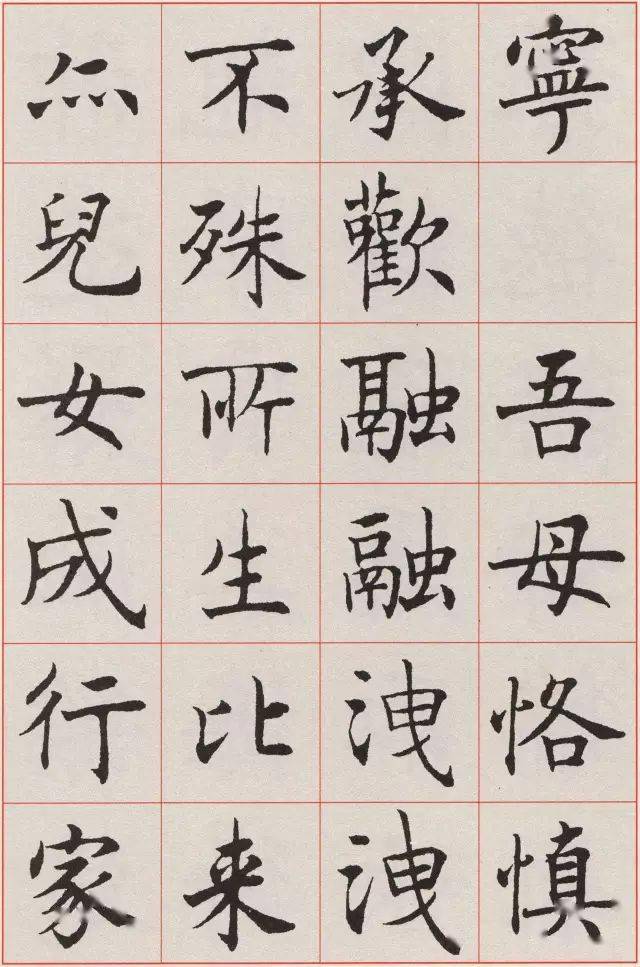 寧 吾母恪慎
承歡融融洩洩
不殊所生比来
𠇮兒女成行家